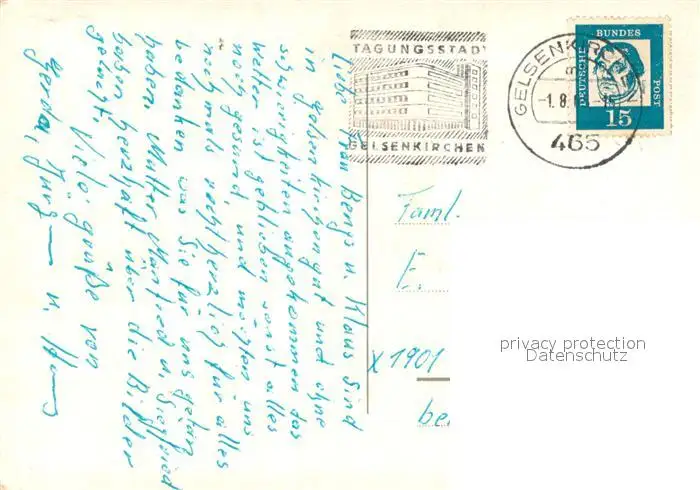 Liebe Frau Bengs u. Klaus Sind
in Gelsenkirchen gut und ohne
Schwierigkeiten angekommen das
wetter ist geblieben sonst alles
noch gesund und möchten uns
nochmals recht herzlich für alles
bedanken was Sie für uns getan
haben. Mutter Manfred u. Siegfried
haben herzhaft über die Bilder
gelacht.
Viele grüße von
Gerda, u.
TAGUNGSSTADT
GELSENKIRCHEN
GELSENKIRCHEN
-1.8.
465
DEUTSCHE BUNDESPOST
15
Faml.
E.
X 1901
be
privacy protection
Datenschutz